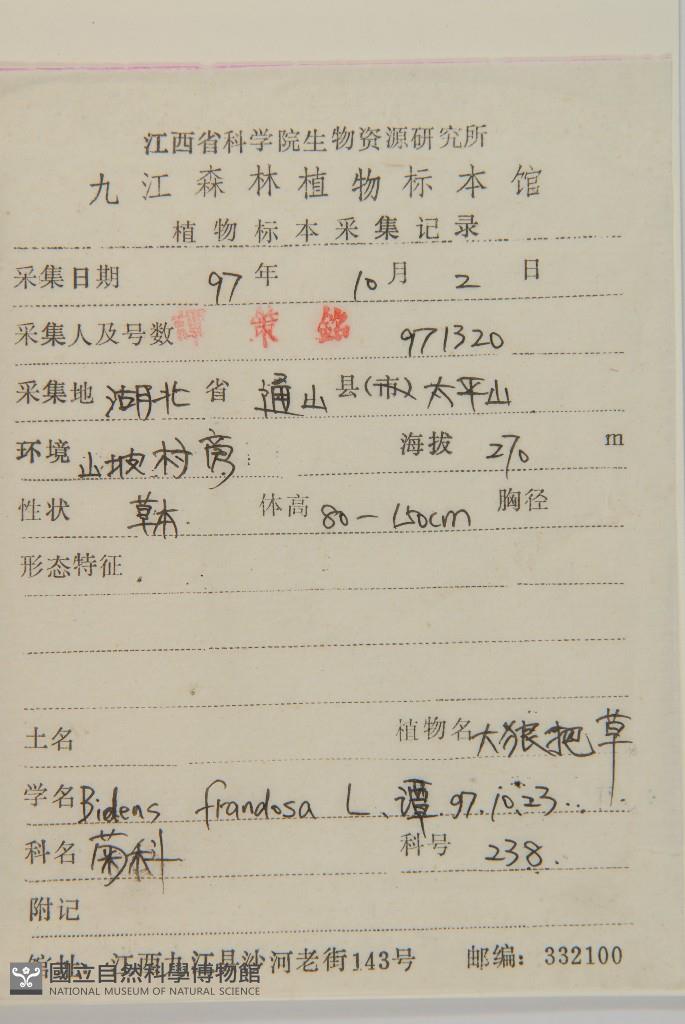 江西省科学院生物资源研究所
九江森林植物标本馆
植物标本采集记录
采集日期 97 年 10 月 2 日
采集人及号数 谭策铭 971320
采集地 湖北 省 通山 县(市) 太平山
环境 山坡村旁 海拔 270 m
性状 草本 体高 80-150cm 胸径
形态特征
土名 植物名 大狼把草
学名 Bidens frandosa L. 谭 97.10.23
科名 菊科 科号 238.
附记
馆址：江西九江县沙河老街143号 邮编：332100
國立自然科學博物館
NATIONAL MUSEUM OF NATURAL SCIENCE